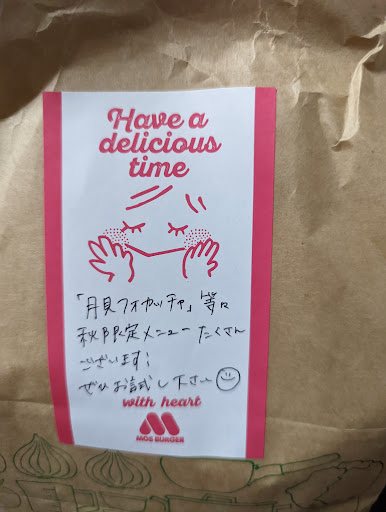 Have a
delicious
time
「月見フォカッチャ」等々
秋限定メニューたくさん
ございます!
ぜひお試し下さい
with heart
MOS BURGER